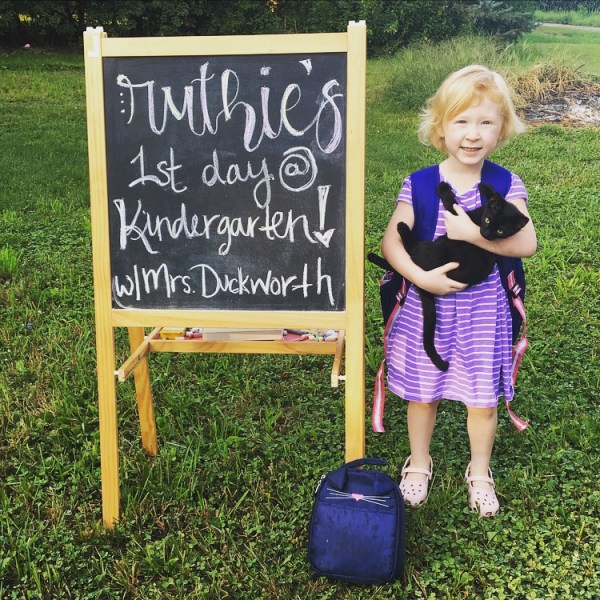 ruthie's
1st day @
Kindergarten!
w/ Mrs. Duckworth